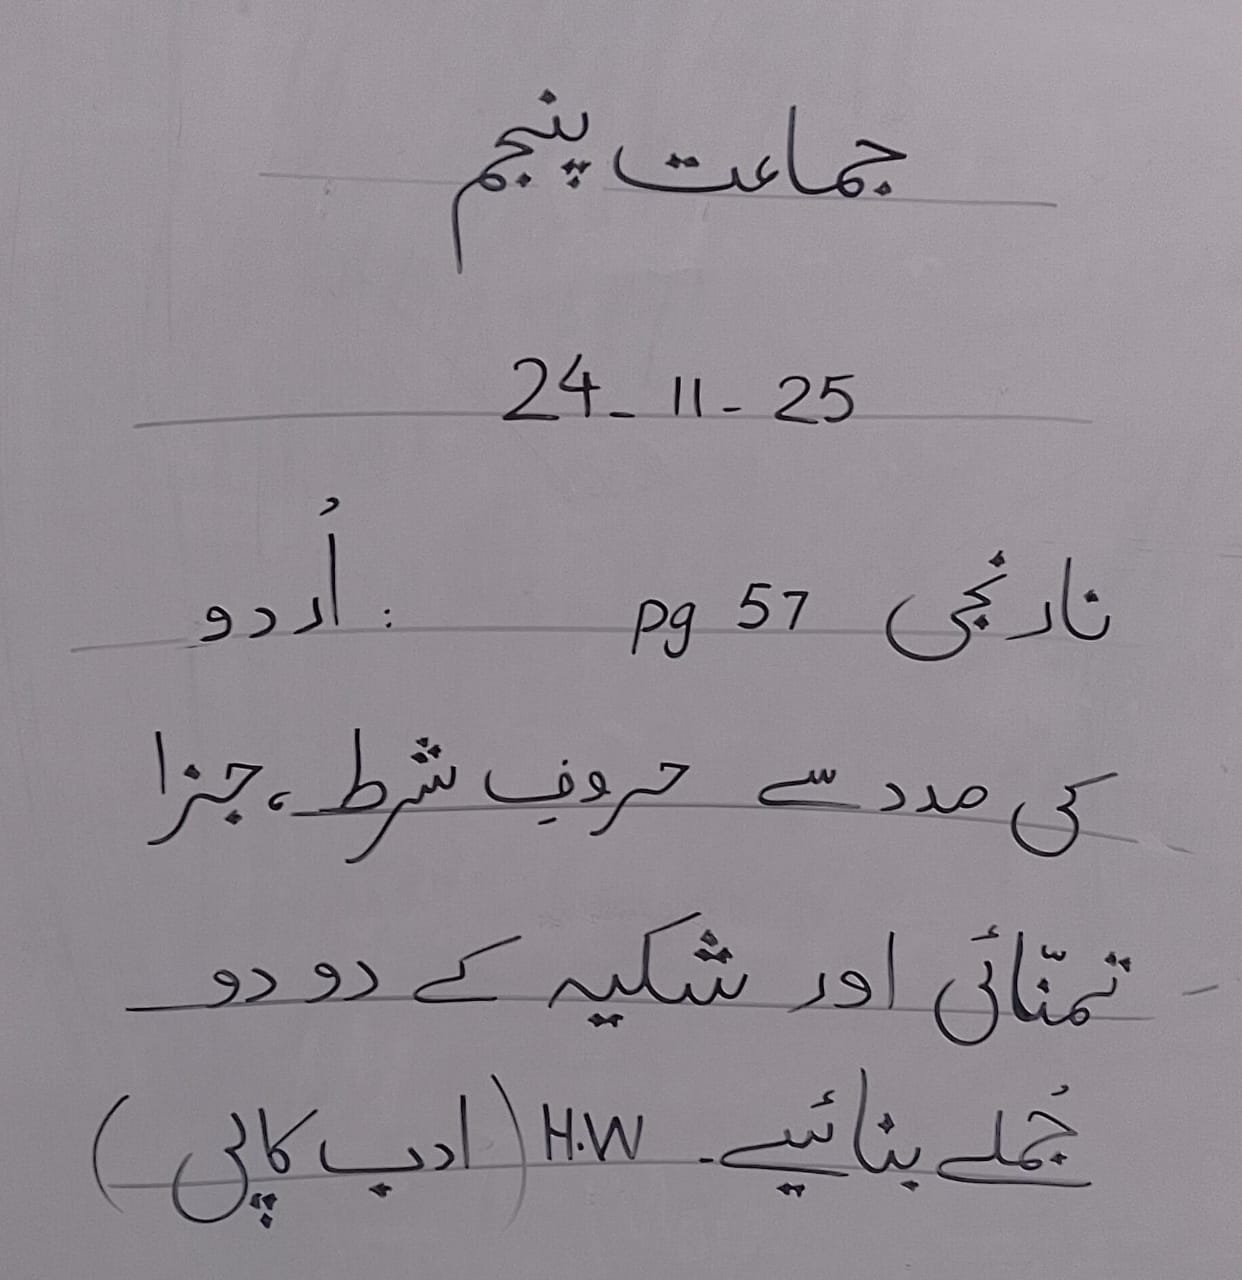 جماعت پنجم
24-11-25
اُردو : نارنجی pg 57
کی مدد سے حروفِ شرط، جزا
تمنّائی اور شکیہ کے دو دو
جُملے بنائیے۔ H.W (ادب کاپی)